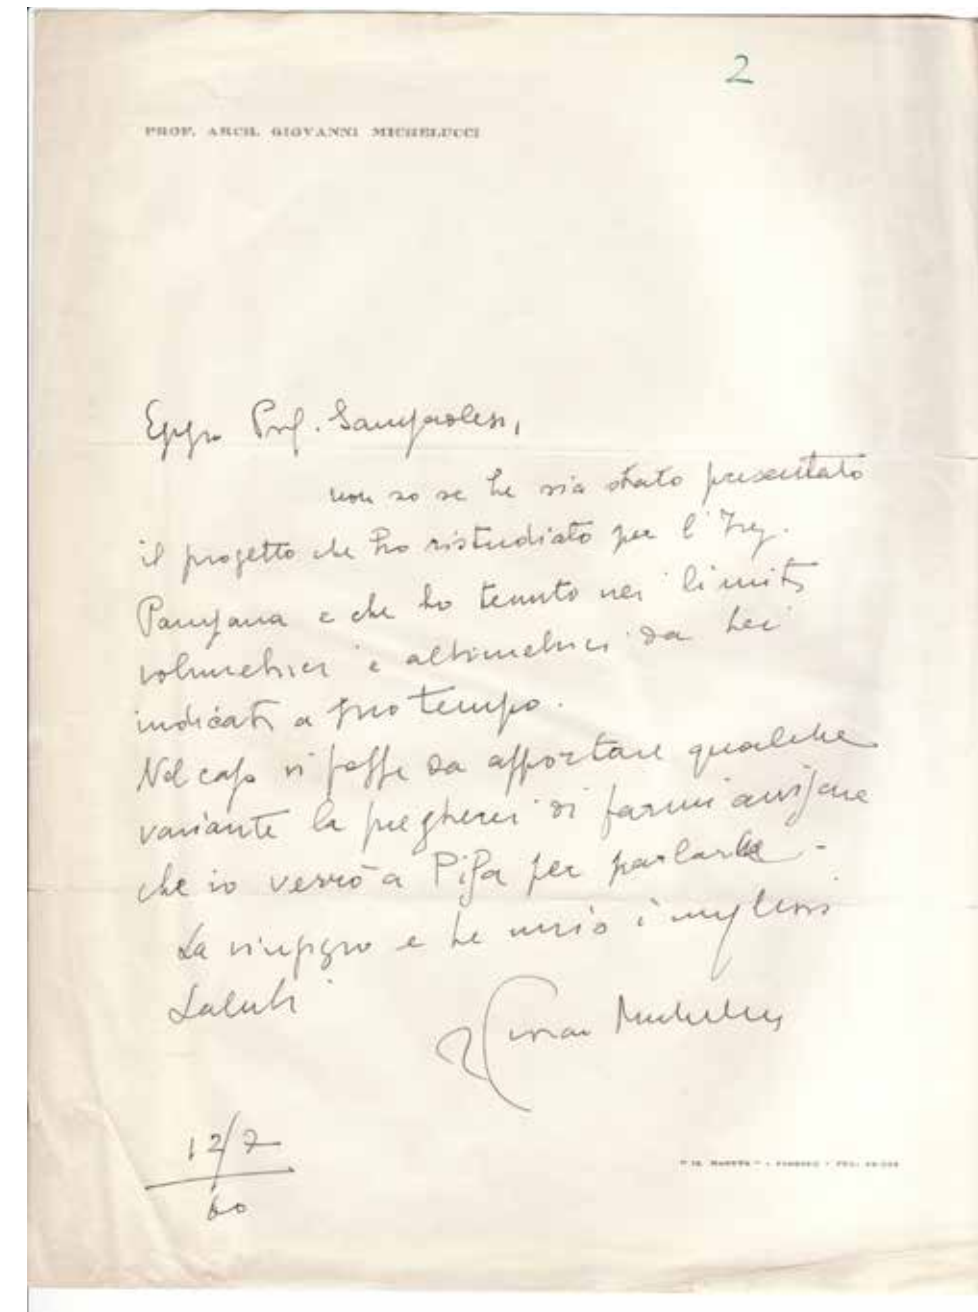 2
PROF. ARCH. GIOVANNI MICHELUCCI
Egr. Prof. Sanpaolesi,
non so se Le sia stato presentato
il progetto che ho ristudiato per l'Ing.
Pampana e che ho tenuto nei limiti
volumetrici e altimetrici da Lei
indicati a suo tempo.
Nel caso vi fosse da apportare qualche
variante la pregherei di farmi avvisare
che io verrò a Pisa per parlarle -
La ringrazio e Le invio i migliori
saluti
Giovanni Michelucci
12/7
60
"IL ROSETO" - FIESOLE - TEL.